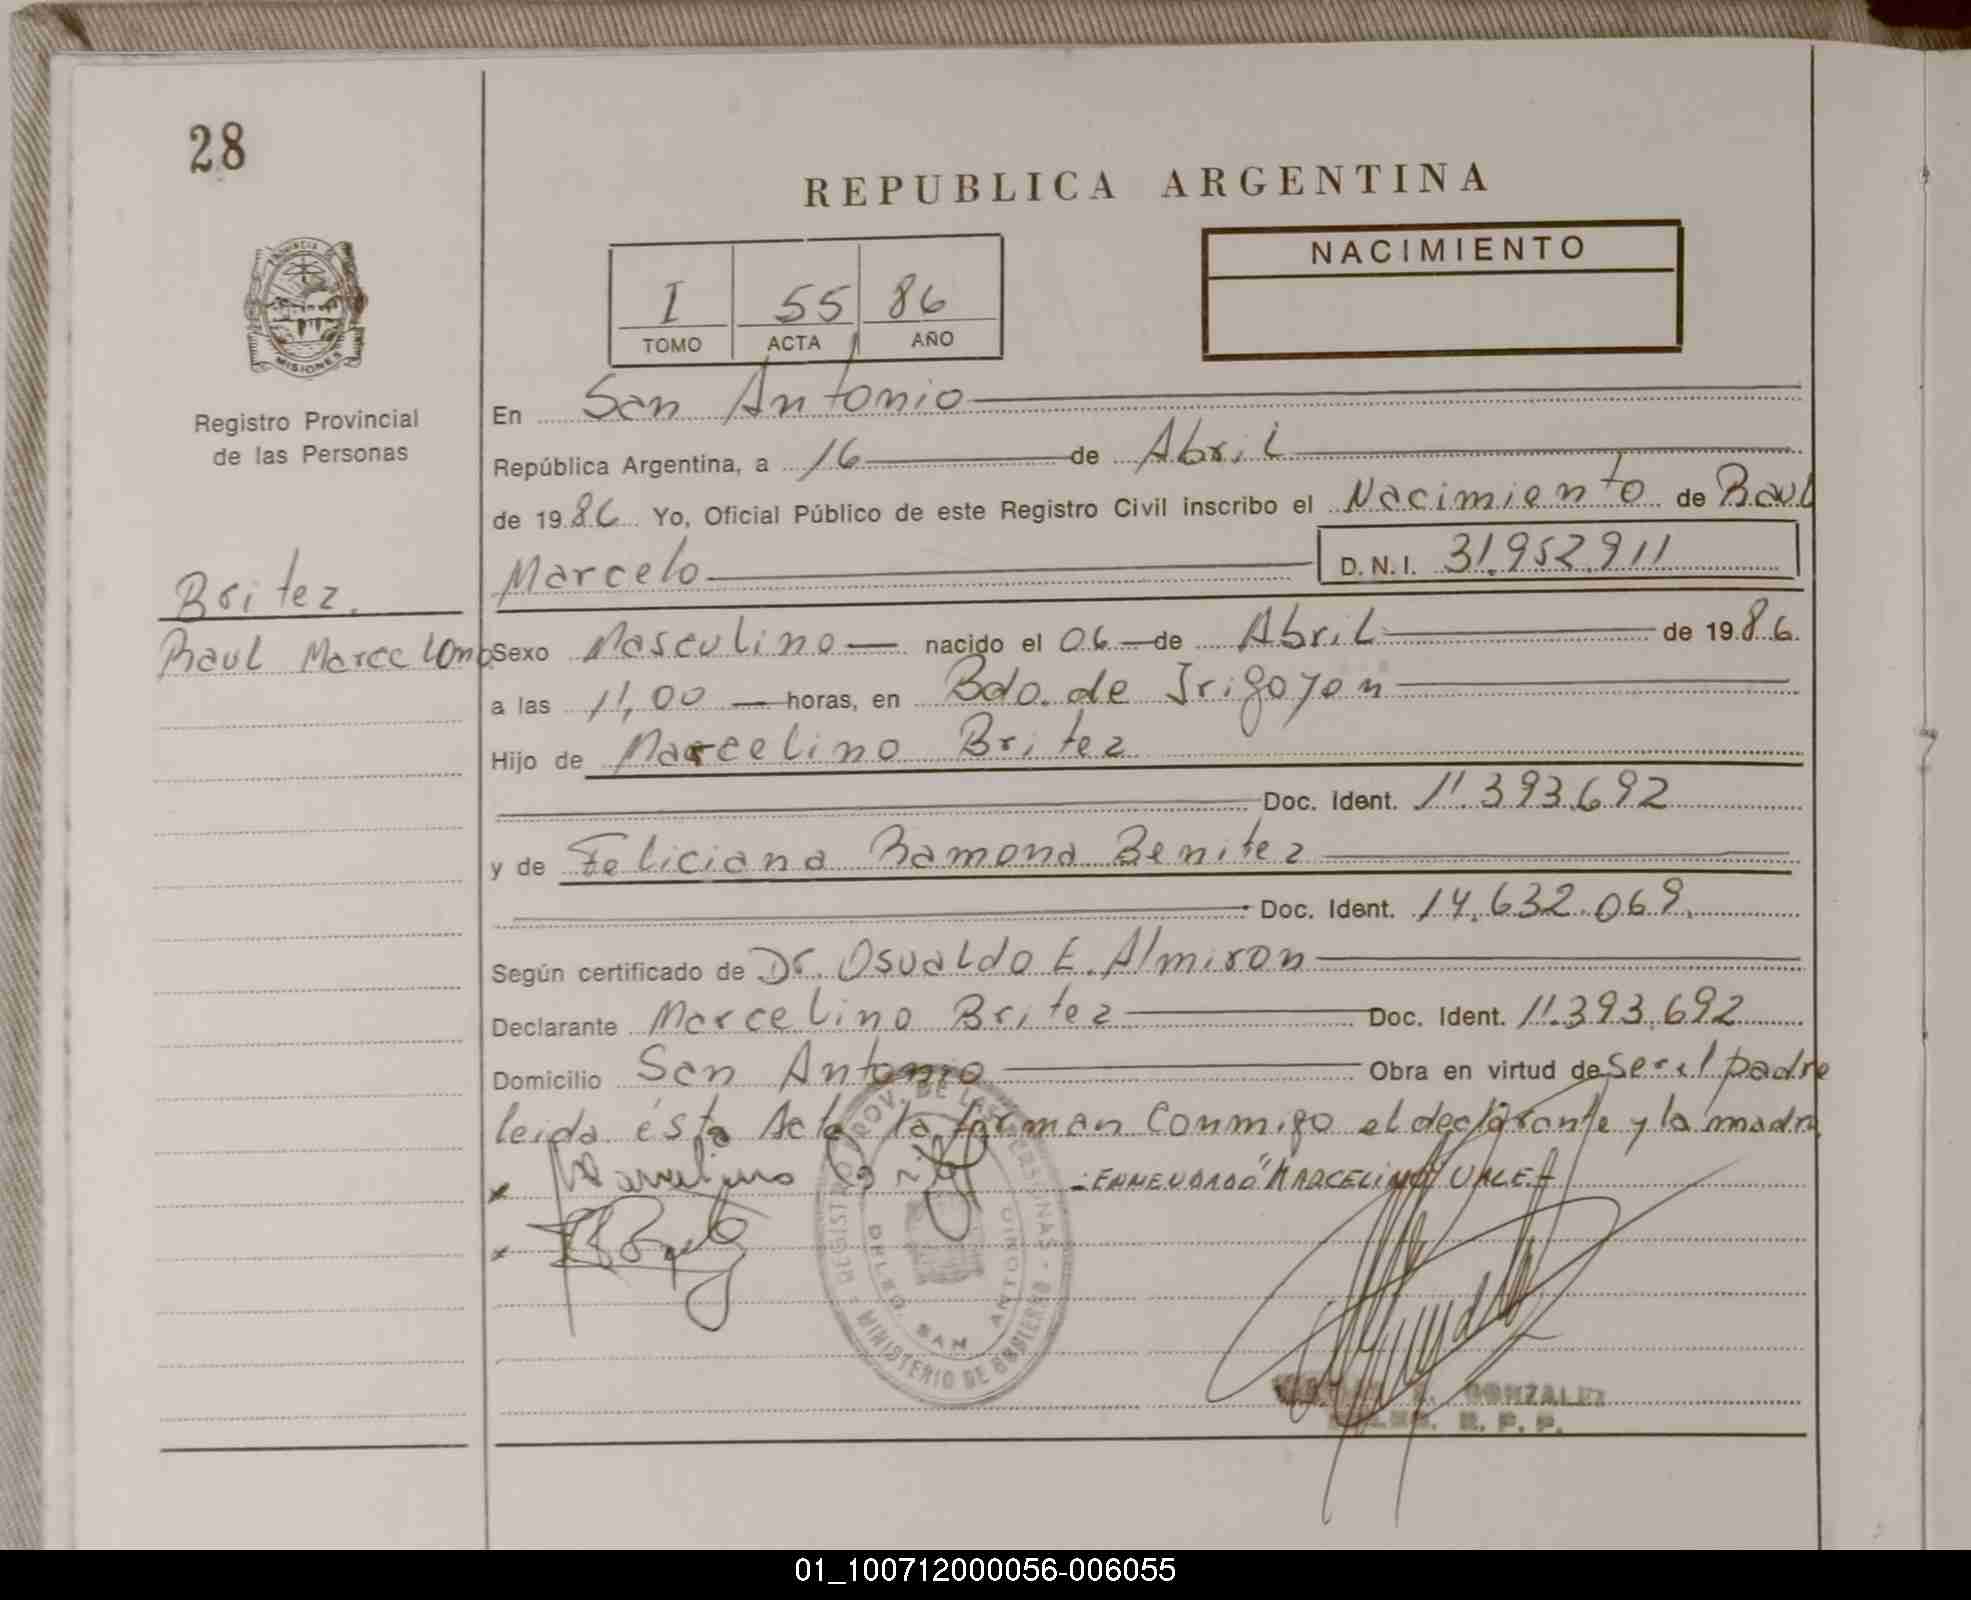 28
REPUBLICA ARGENTINA
NACIMIENTO
I 55 86
TOMO ACTA AÑO
PROVINCIA DE
MISIONES
Registro Provincial
de las Personas
En San Antonio
República Argentina, a 16 de Abril
de 1986 Yo, Oficial Público de este Registro Civil inscribo el Nacimiento de Raul
Marcelo D.N.I. 31.952.911
Britez,
Raul Marcelo
Sexo Masculino nacido el 06 de Abril de 1986.
a las 11,00 horas, en Bdo. de Irigoyen
Hijo de Marcelino Britez
Doc. Ident. 11.393.692
y de Feliciana Ramona Benitez
Doc. Ident. 14.632.069.
Según certificado de Dr. Osvaldo E. Almiron
Declarante Marcelino Britez Doc. Ident. 11.393.692
Domicilio San Antonio Obra en virtud de ser el padre
leida ésta Acta la forman Conmigo el declarante y la madre
x Marcelino Britez - ENMENDADO "MARCELINO" VALE
x
REGISTRO PROV. DE LAS PERSONAS - MINISTERIO DE GOBIERNO
DELEG. SAN ANTONIO
GONZALEZ
R. P. P.
01_100712000056-006055